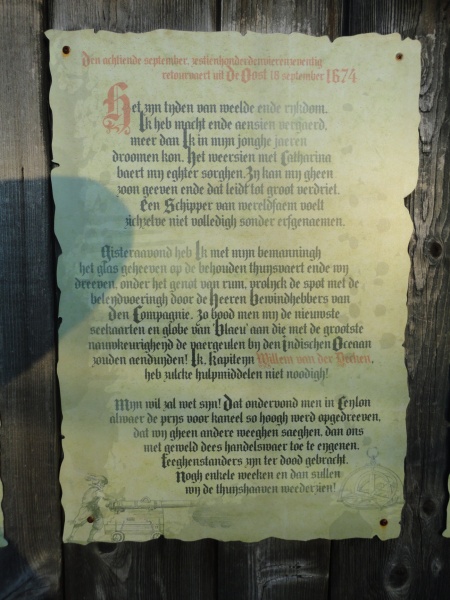 Den achtiende september, zestienhonderdenvierenzeventig
retourvaert uit De Oost 18 september 1674
Het zyn tyden van weelde ende rykdom.
Ik heb macht ende aensien vergaerd,
meer dan Ik in myn jonghe jaeren
droomen kon. Het weersien met Catharina
baert my eghter sorghen. Zy kan my gheen
zoon geeven ende dat leidt tot groot verdriet.
Een Schipper van wereldfaem voelt
zichzelve niet volledigh sonder erfgenaemen.
Gisteraavond heb Ik met myn bemanningh
het glas geheeven op de behouden thuysvaert ende wy
dreeven, onder het genot van rum, prolyck de spot met de
beleydvoeringh door de Heeren Bewindhebbers van
Den Compagnie. Zo bood men my de nieuwste
zeekaarten en globe van 'Blaeu' aan die met de grootste
nauwkeurigheyd de vaergeulen by den Indischen Oceaan
zouden aenduyden! Ik, Kapiteyn Willem van der Decken,
heb zulcke hulpmiddelen niet noodigh!
Myn wil zal wet syn! Dat ondervond men in Ceylon
alwaer de prys voor kaneel so hoogh werd opgedreeven,
dat wy gheen andere weeghen saeghen, dan ons
met geweld dees handelswaer toe te eygenen.
Teeghenstanders zyn ter dood gebracht.
Nogh enkele weeken en dan sullen
wy de thuyshaaven weederzien!